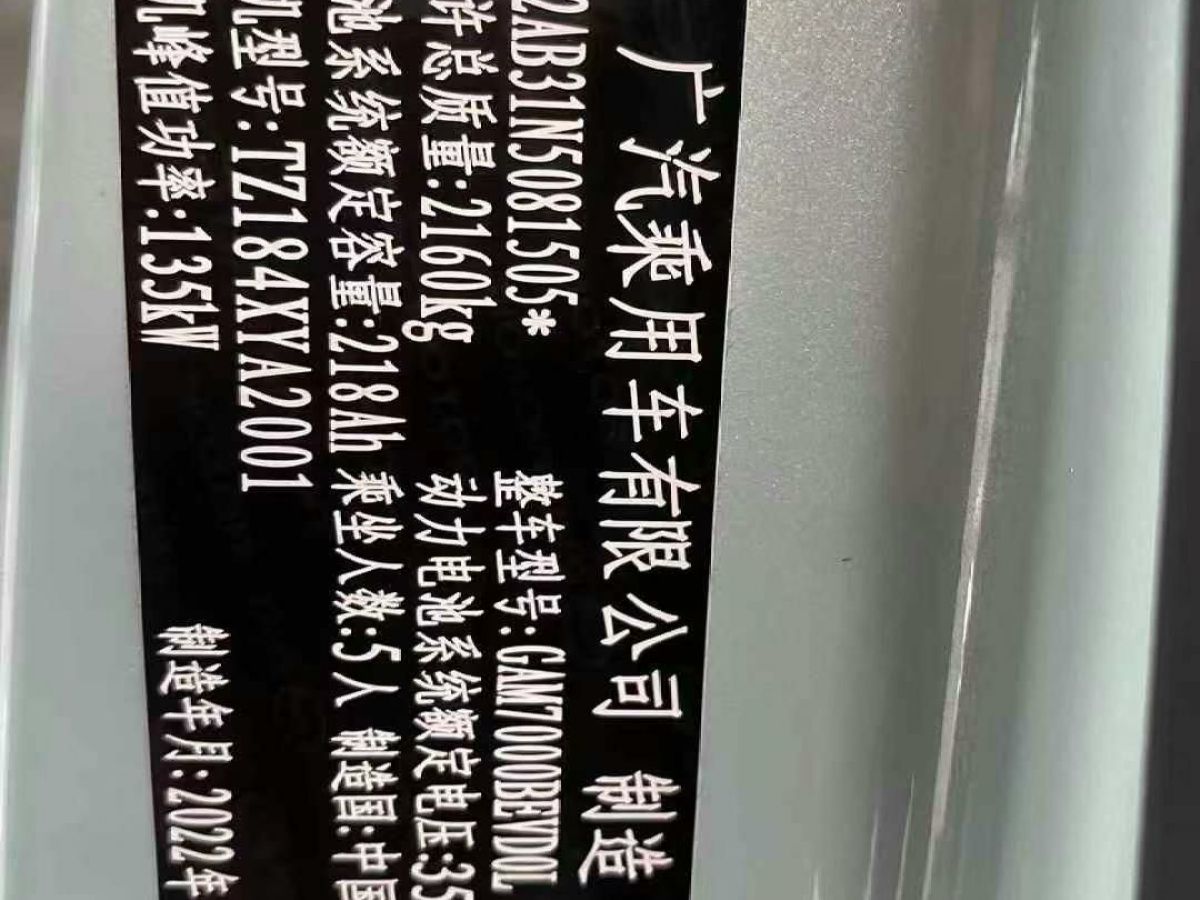 广汽乘用车有限公司 制造
2AB31N5081505* 整车型号:GAM7000BEVD0L
许总质量:2160kg 动力电池系统额定电压:35
池系统额定容量:218Ah 乘坐人数:5人 制造国:中国
机型号:TZ184XYA2001
机峰值功率:135kW 制造年月:2022年